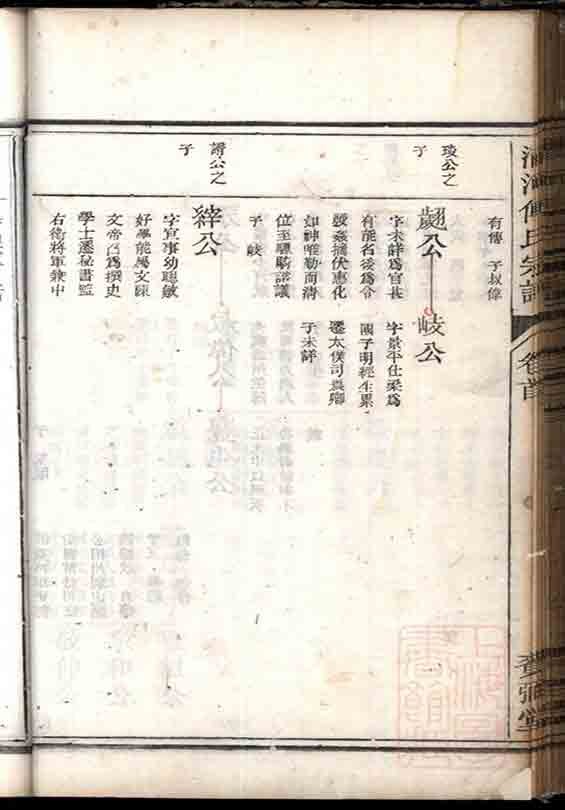 傅氏宗譜
卷首
有傳 子叔偉
琰公之
子
翽公 岐公
字未詳為官長
有能名後為令
發姦摘伏惠化
如神唯勤而清
位至驃騎諮議
子 岐
字景平仕梁為
國子明經生累
遷太僕司農卿
子未詳
諝公之
子
縡公
字宜事幼聰敏
好學能屬文陳
文帝召為撰史
學士遷秘書監
右衛將軍兼中